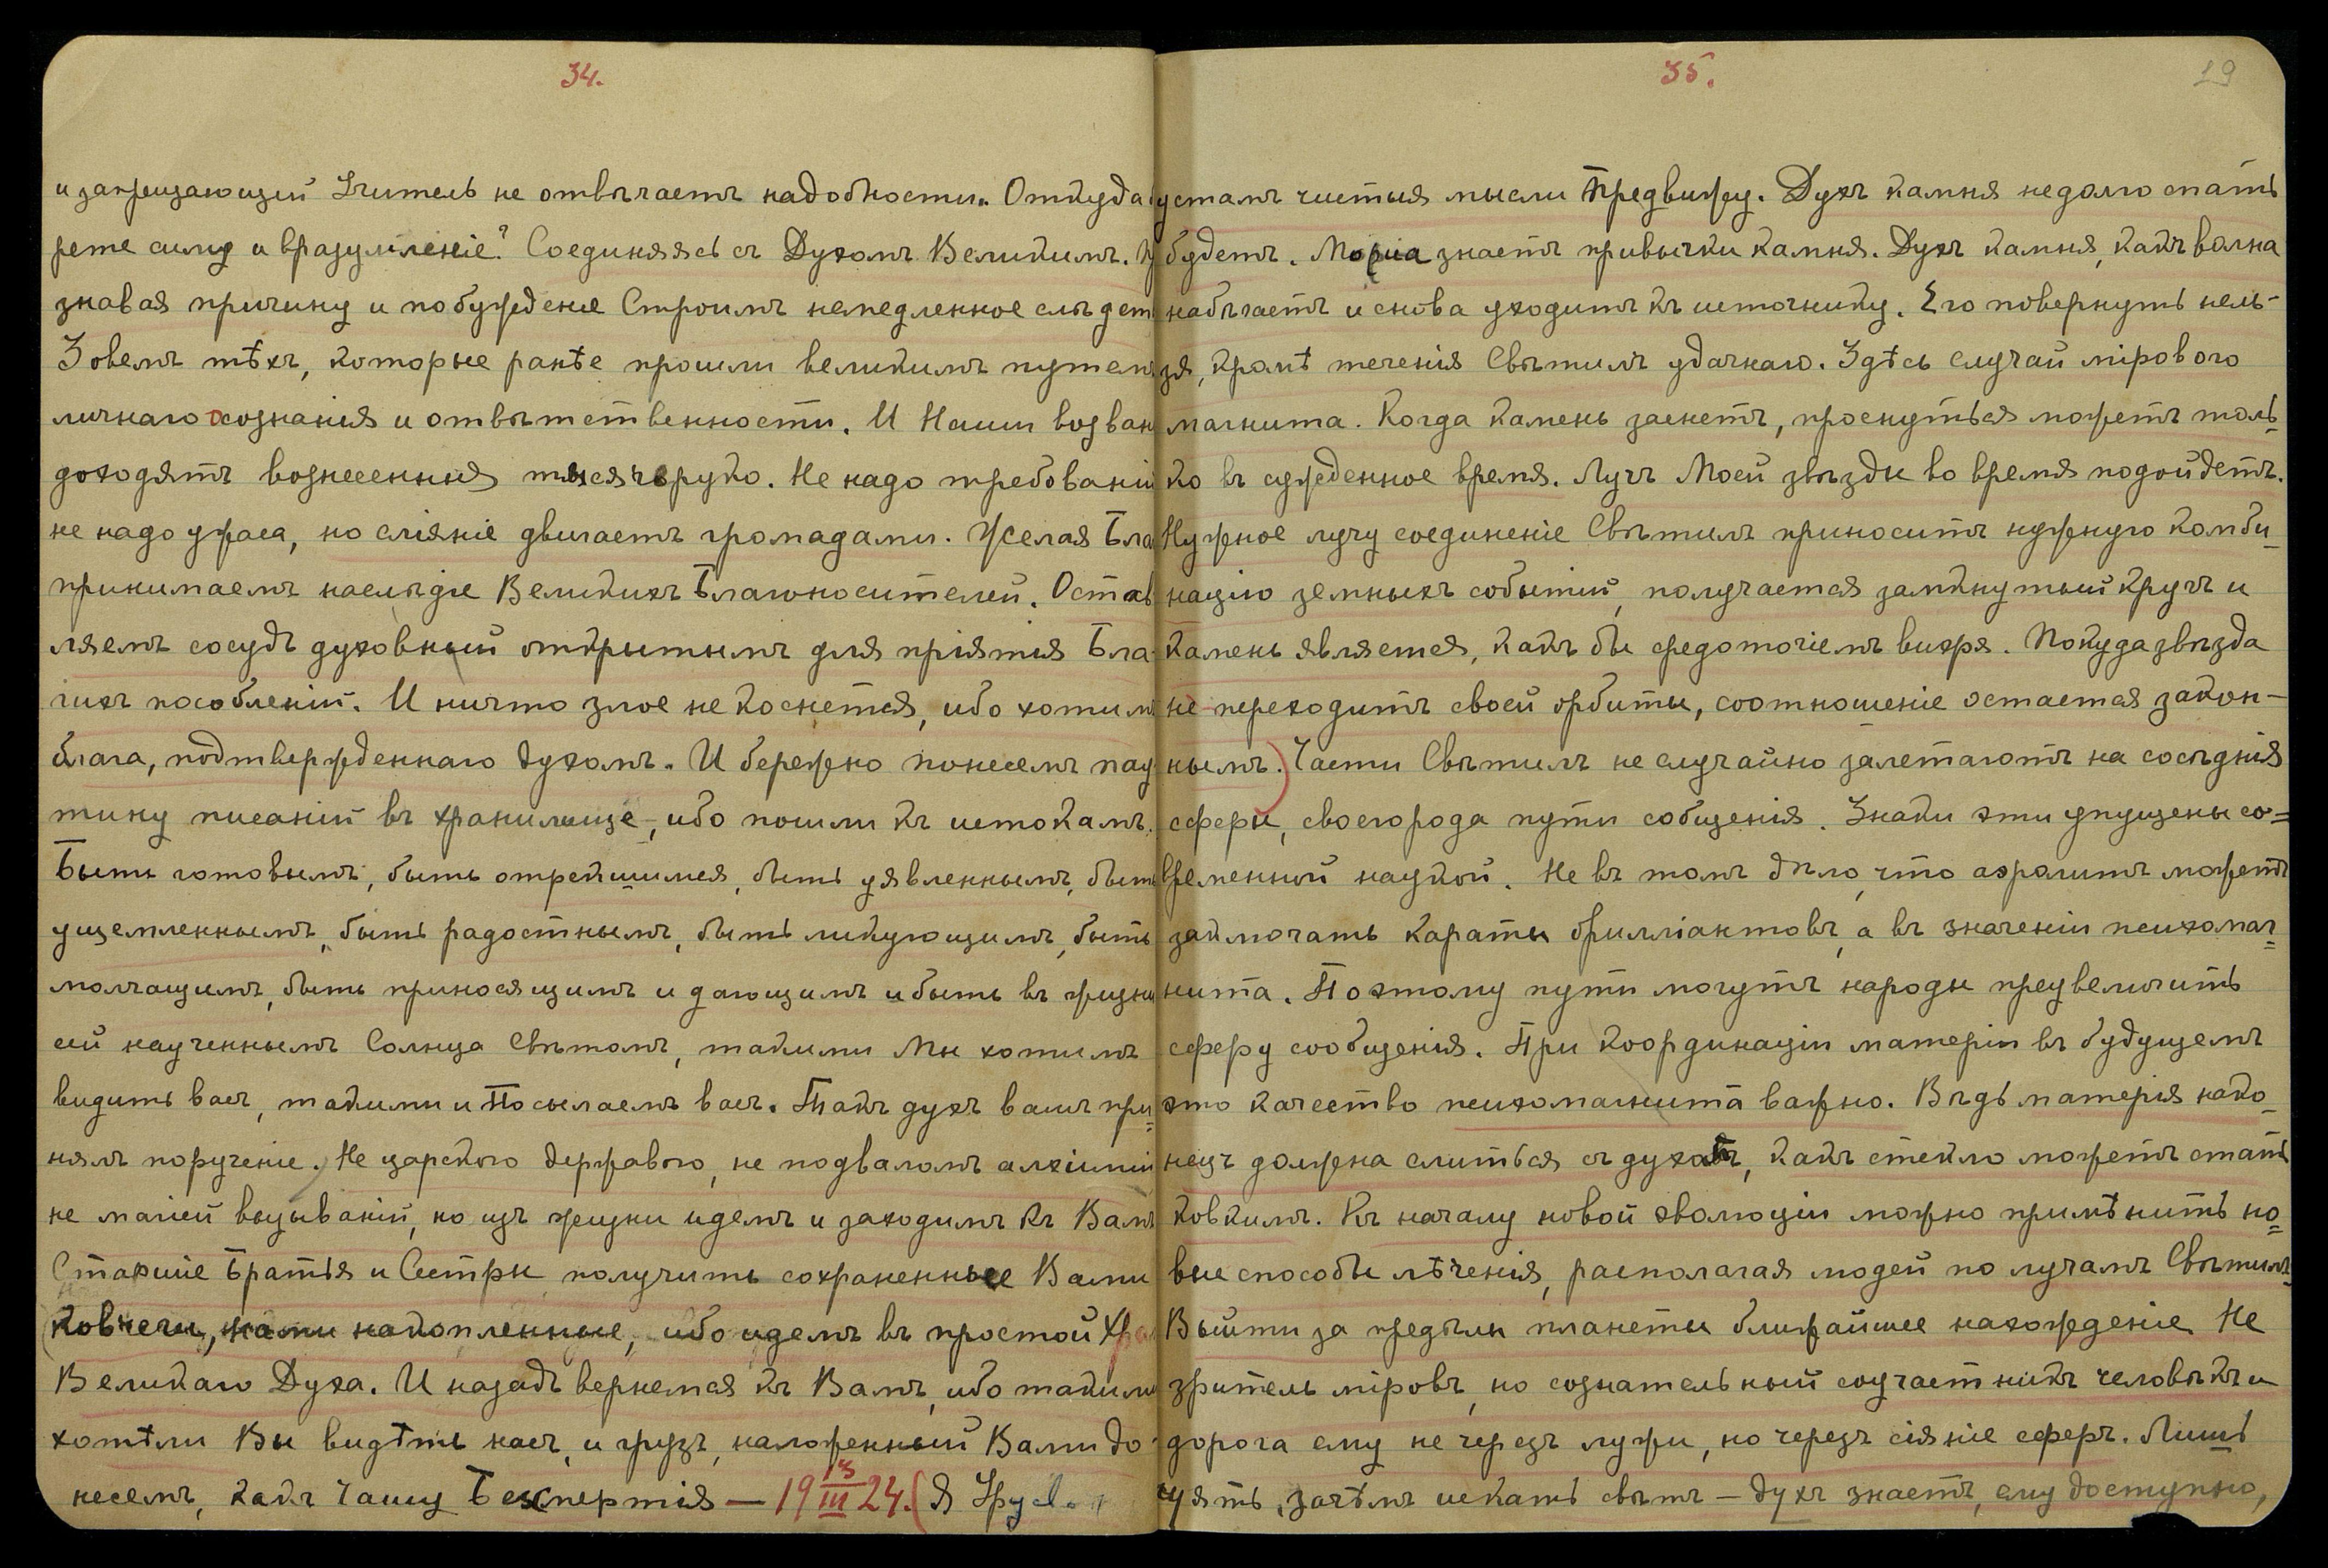 34.
и запрещающій Учитель не отвѣчаетъ надобности. Откуда
рете силу и вразумленіе? Соединяясь съ Духомъ Великимъ.
знавая причину и побужденіе Строимъ немедленное слѣдст
Зовемъ тѣхъ, которые ранѣе прошли великимъ путемъ
личнаго сознанія и отвѣтственности. И Наши возван
доходятъ вознесенныя тысячеруко. Не надо требованій
не надо ужаса, но сліяніе двигаетъ громадами. Желая Бла
принимаемъ наслѣдіе Великихъ Благоносителей. Остав
ляемъ сосудъ духовный открытымъ для пріятія Бла-
гихъ пособленій. И ничто злое не коснется, ибо хотимъ
блага, подтвержденнаго духомъ. И бережно понесемъ пау
тину писаній въ хранилище, ибо пошли къ истокамъ.
Быть готовымъ, быть отрекшимся, быть уявленнымъ, быть
ущемленнымъ, быть радостнымъ, быть ликующимъ, быть
молчащимъ, быть приносящимъ и дающимъ и быть въ жизни
сей наученнымъ Солнца Свѣтомъ, такими Мы хотимъ
видить васъ, такими и Посылаемъ васъ. Такъ духъ вашъ при=
нялъ порученіе. Не царского державого, не подваломъ алхиміи
не магіей вызываній, но изъ жизни идемъ и заходимъ къ Вамъ
Старшіе Братья и Сестры получить сохраненные Вами
ковчеги, нами накопленные, ибо идемъ въ простой Хра
Великаго Духа. И назадъ вернемся къ Вамъ, ибо такими
хотѣли Вы видѣть насъ, и грузъ, наложенный Вами до-
несемъ, какъ Чашу Безсмертія — 19 13/III 24. (Я
35.
29
устамъ чистыя мысли Предвижу. Духъ камня недолго спать
будетъ. Моріа знаетъ привычки камня. Духъ камня, какъ волна
набѣгаетъ и снова уходитъ къ источнику. Его повернуть нель-
зя, кромѣ теченія Свѣтилъ удачнаго. Здѣсь случай мірового
магнита. Когда камень заснетъ, проснуться можетъ толь-
ко въ сужденное время. Лучъ Моей звѣзды во время подойдетъ.
Нужное лучу соединеніе Свѣтилъ приноситъ нужную комби-
націю земныхъ событій, получается замкнутый кругъ и
камень является, какъ бы средоточіемъ вихря. Покуда звѣзда
не переходитъ своей орбиты, соотношеніе остается закон-
нымъ. Части Свѣтилъ не случайно залетаютъ на сосѣднія
сферы, своего рода пути собщенія. Знаки эти упущены со=
временной наукой. Не въ томъ дѣло, что аэролитъ можетъ
заключать караты бриллiантовъ, а въ значеніи психомаг=
нита. Поэтому пути могутъ народы преувеличить
сферу сообщенія. При координаціи матеріи въ будущемъ
это качество психомагнита важно. Вѣдь матерія нако-
нецъ должна слиться съ духомъ, какъ стекло можетъ стать
ковкимъ. Къ началу новой эволюціи можно примѣнить но=
вые способы лѣченія, располагая людей по лучамъ Свѣтилъ.
Выйти за предѣлы планеты ближайшее нахожденіе. Не
зритель міровъ, но сознательный соучастникъ человѣкъ и
дорога ему не черезъ лужи, но черезъ сіяніе сферъ. Лишь
чуять, зачѣмъ искать свѣтъ — духъ знаетъ, ему доступно,